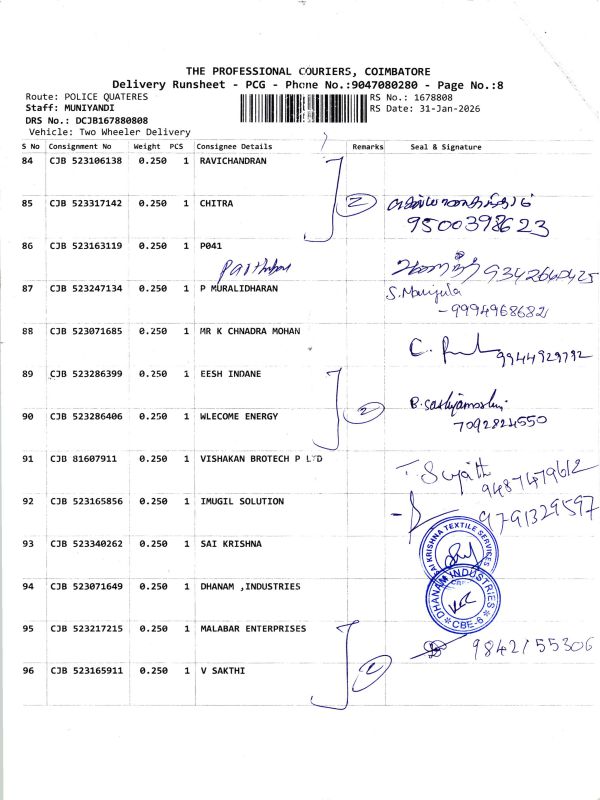 THE PROFESSIONAL COURIERS, COIMBATORE
Delivery Runsheet - PCG - Phone No.:9047080280 - Page No.:8
Route: POLICE QUATERES
RS No.: 1678808
Staff: MUNIYANDI
RS Date: 31-Jan-2026
DRS No.: DCJB167880808
Vehicle: Two Wheeler Delivery
S No Consignment No Weight PCS Consignee Details Remarks Seal & Signature
84 CJB 523106138 0.250 1 RAVICHANDRAN
85 CJB 523317142 0.250 1 CHITRA 2
9500398623
86 CJB 523163119 0.250 1 P041
9342660425
87 CJB 523247134 0.250 1 P MURALIDHARAN S. Manjula
-9994968682
88 CJB 523071685 0.250 1 MR K CHNADRA MOHAN
9944929792
89 CJB 523286399 0.250 1 EESH INDANE
2
90 CJB 523286406 0.250 1 WLECOME ENERGY
7092824550
91 CJB 81607911 0.250 1 VISHAKAN BROTECH P LTD
T. Sujith
9487479612
92 CJB 523165856 0.250 1 IMUGIL SOLUTION
9791329597
93 CJB 523340262 0.250 1 SAI KRISHNA
SAI KRISHNA TEXTILE SERVICES
94 CJB 523071649 0.250 1 DHANAM ,INDUSTRIES
DHANAM INDUSTRIES
CBE-6
95 CJB 523217215 0.250 1 MALABAR ENTERPRISES
9842155306
96 CJB 523165911 0.250 1 V SAKTHI